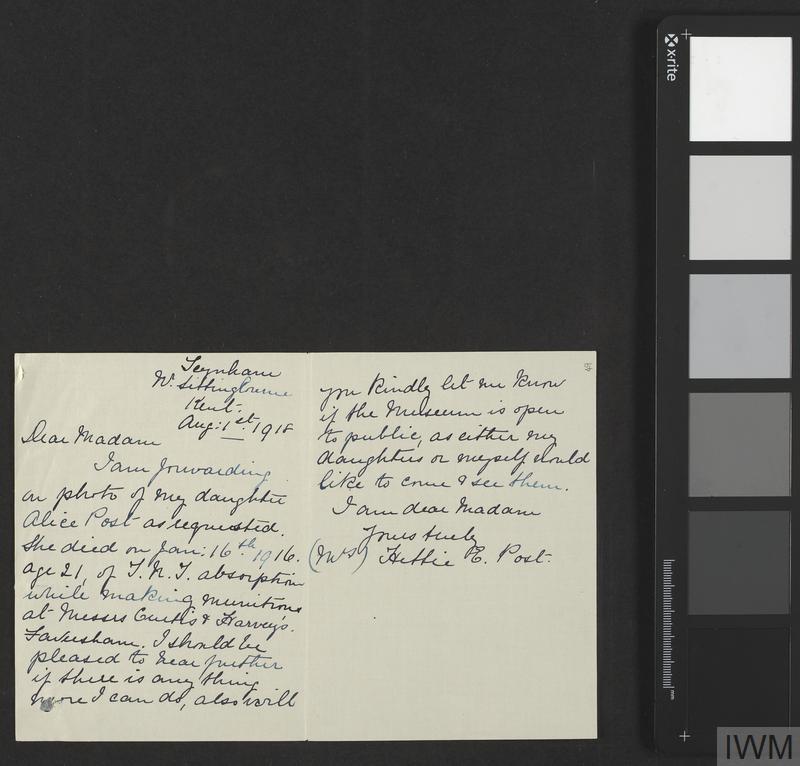 Teynham
Nr. Sittingbourne
Kent.
Aug: 1st. 1918
Dear Madam
I am forwarding
on photo of my daughter
Alice Post as requested.
She died on Jan: 16th. 1916.
age 21, of T.N.T. absorption
while making munitions
at Messrs Curtis & Harvey's.
Faversham. I should be
pleased to hear further
if there is any thing
more I can do, also will
49
you kindly let me know
if the Museum is open
to public, as either my
daughters or myself would
like to come & see them.
I am dear Madam
Yours truly
(Mrs) Hettie E. Post.
x-rite
mm
IWM